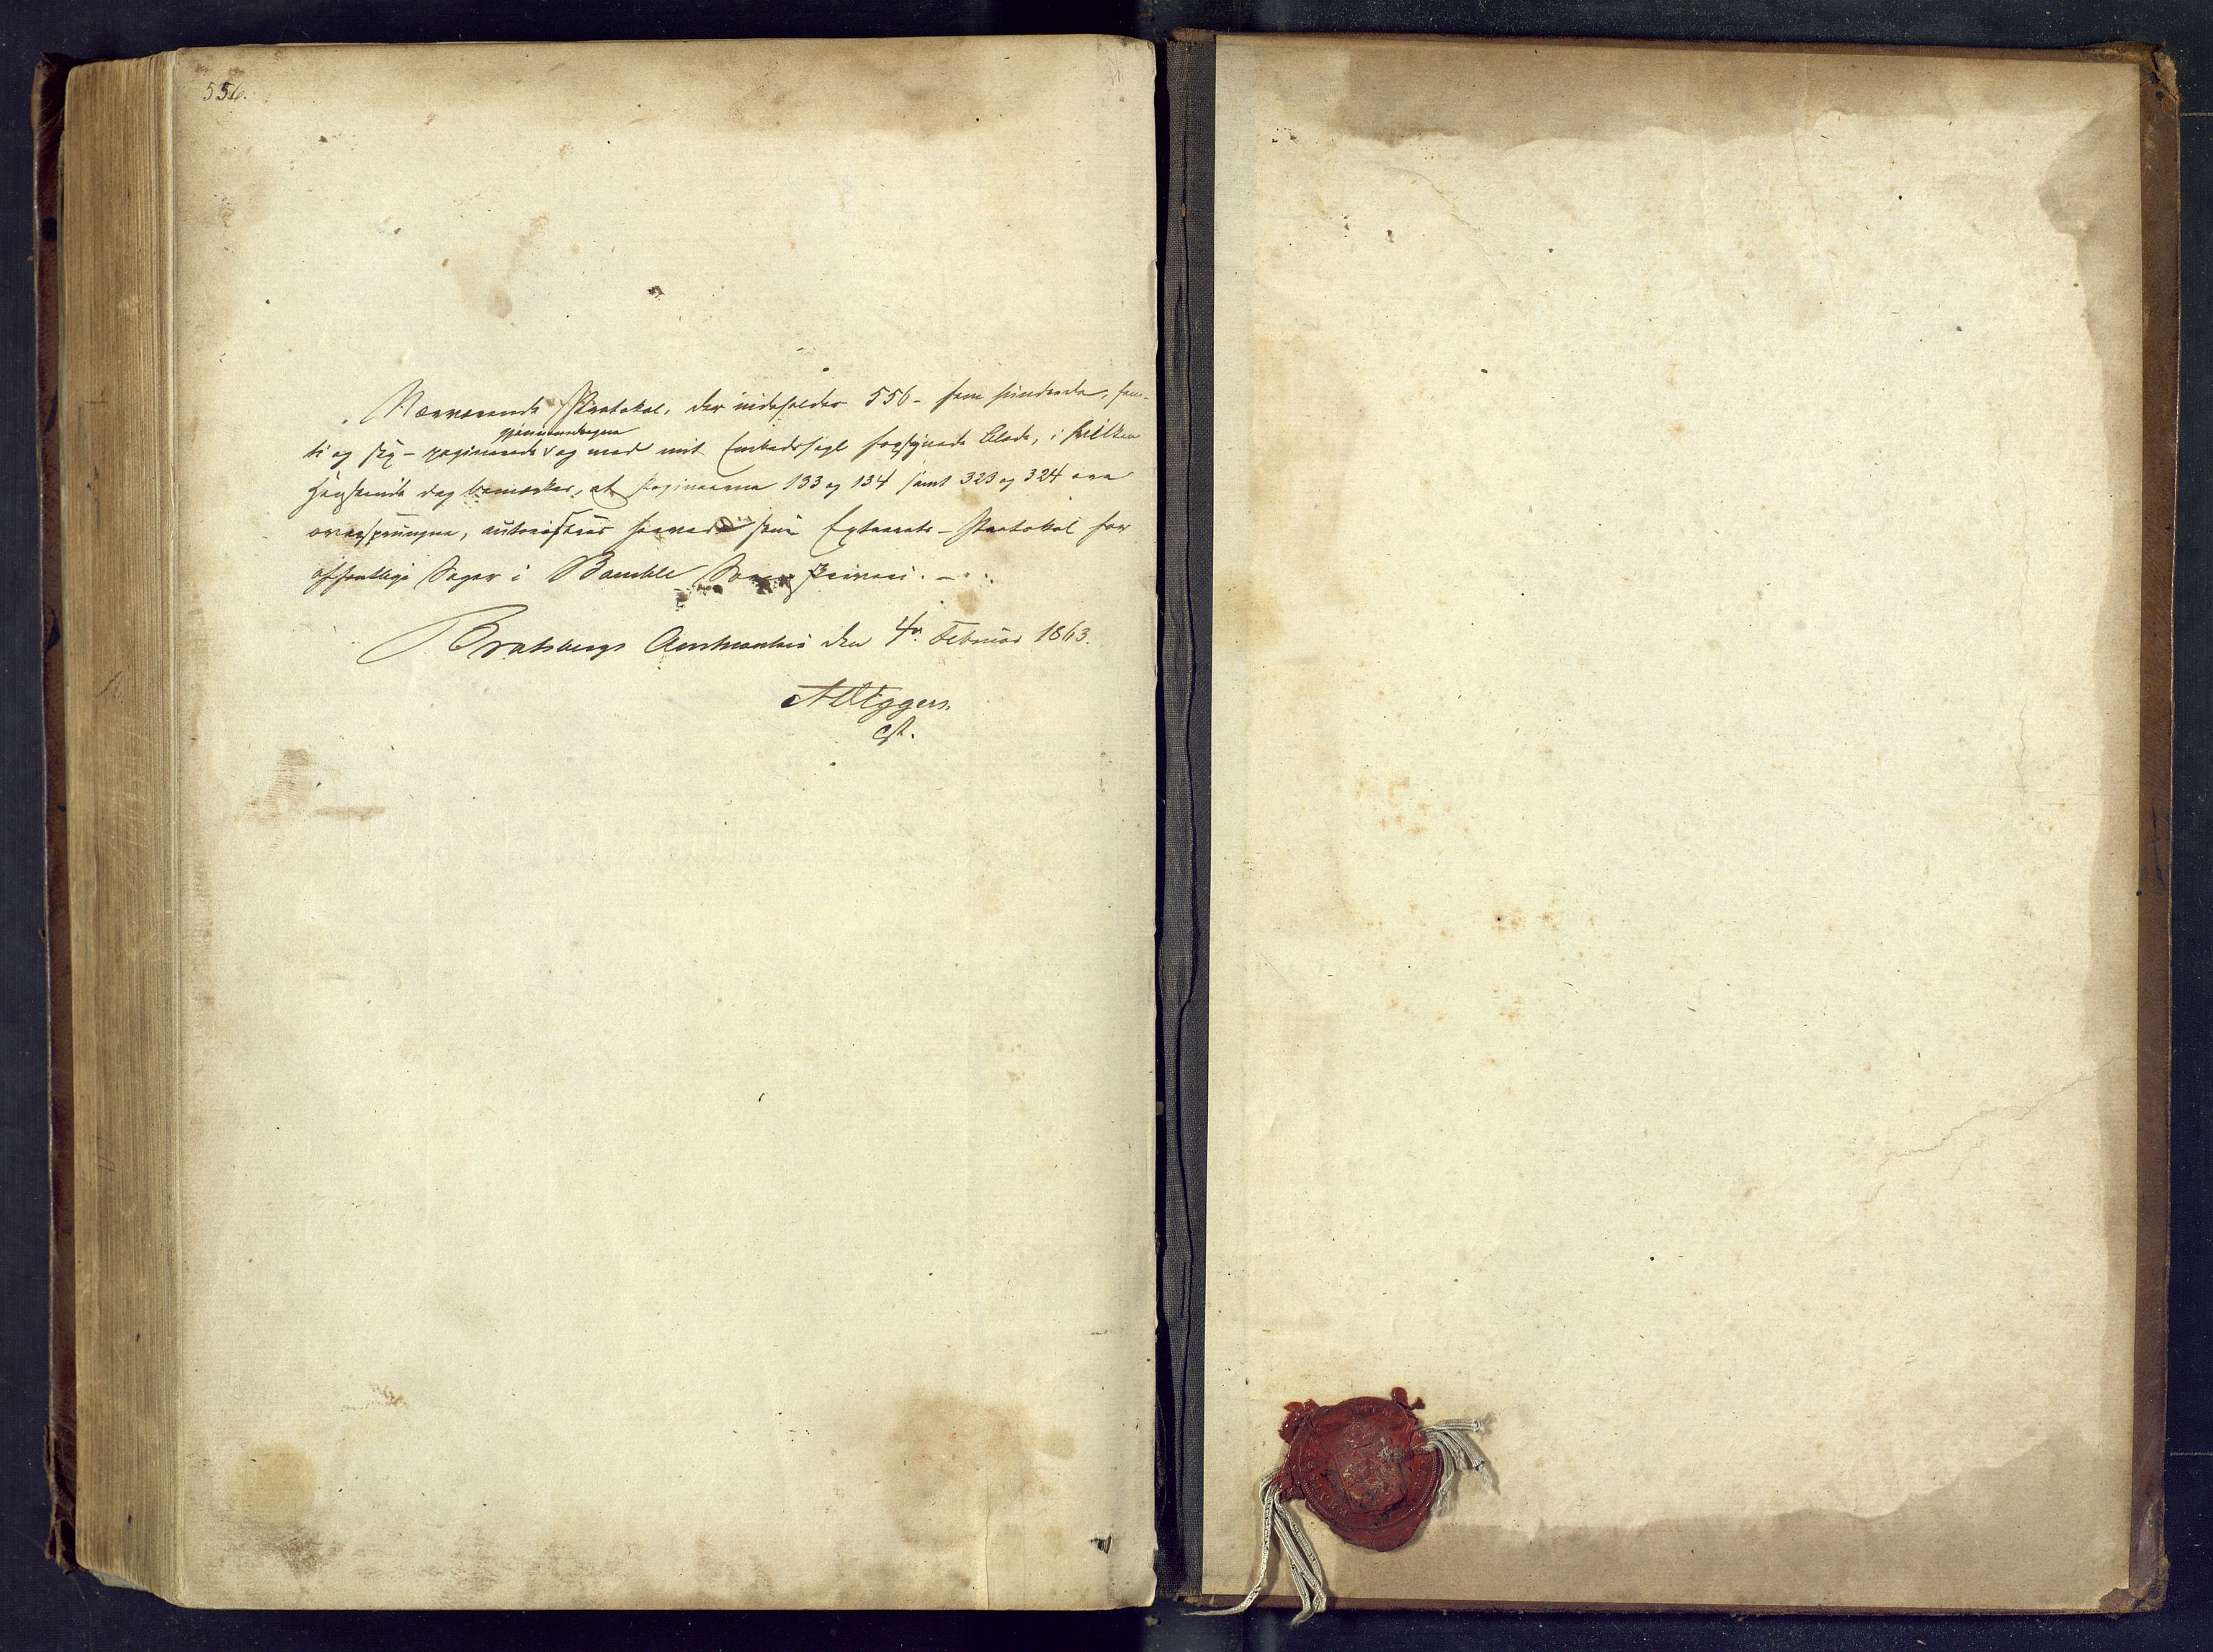 556.
Nærværende Protokol, der indeholder 556 - fem hundrede, fem-
ti og sex - paginerede gjennemdragne og med mit Embedssegl forsynede Blade, i hvilken
Henseende dog bemærkes, at Paginaerne 133 og 134 samt 323 og 324 ere
oversprungne, autoriseres herved som Extrarets-Protokol for
offentlige Sager i Bamble Sorenskriveri. -
Bratsbergs Amtcontoir den 4de Februar 1863.
Aall